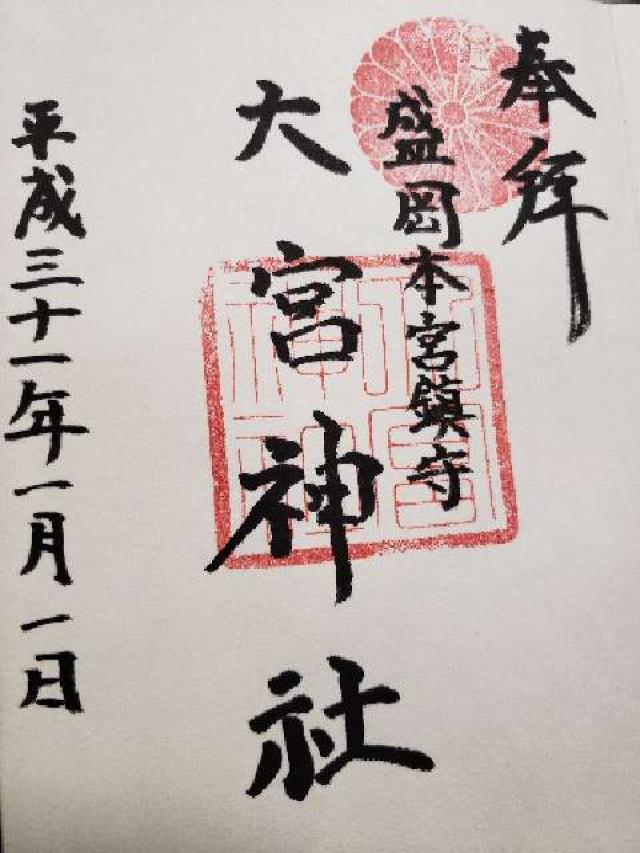 奉拜
盛岡本宮鎮守
大宮神社
平成三十一年一月一日
大宮神社